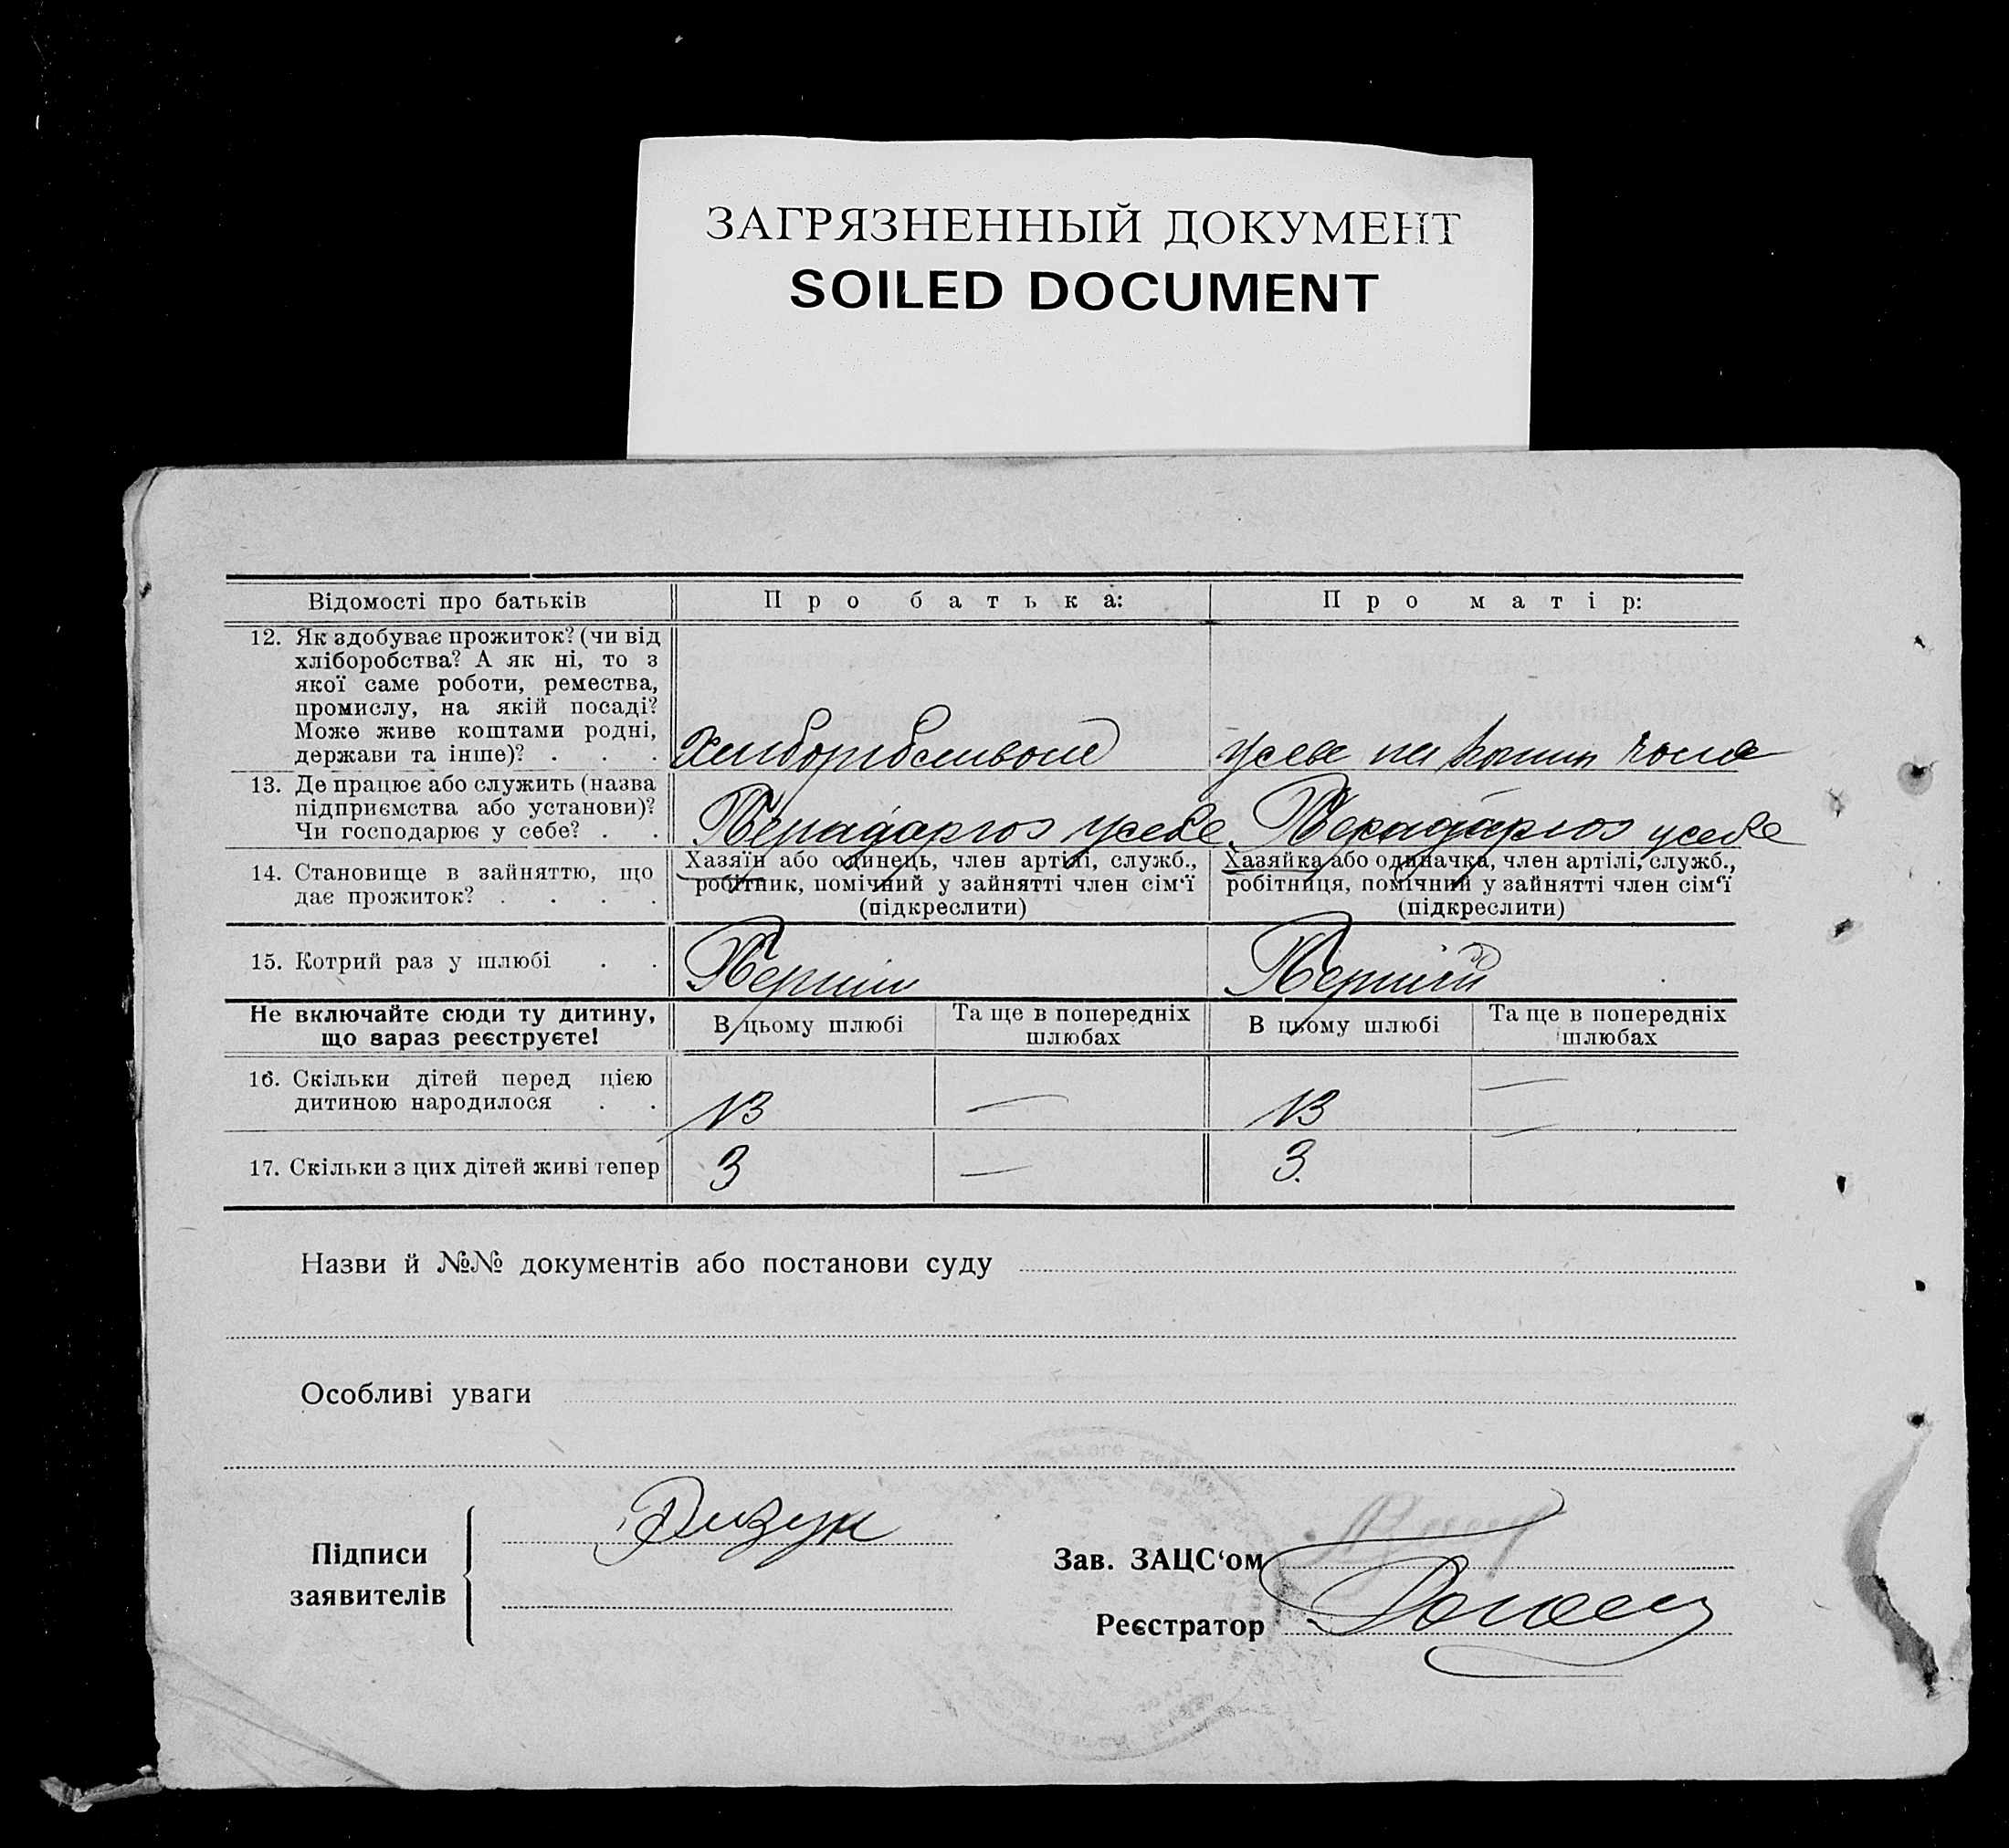 ЗАГРЯЗНЕННЫЙ ДОКУМЕНТ
SOILED DOCUMENT
Відомості про батьків
Про батька:
Про матір:
12. Як здобуває прожиток? (чи від
хліборобства? А як ні, то з
якої саме роботи, ремества,
промислу, на якій посаді?
Може живе коштами родні,
держави та інше)? . . .
усебе на
13. Де працює або служить (назва
підприємства або установи)?
Чи господарює у себе? . .
усебе
усебе
14. Становище в зайняттю, що
дає прожиток? . . . .
Хазяїн або одинець, член артілі, служб.,
робітник, помічний у зайнятті член сім‘ї
(підкреслити)
Хазяйка або одиначка, член артілі, служб.,
робітниця, помічний у зайнятті член сім‘ї
(підкреслити)
15. Котрий раз у шлюбі . .
Перший
Перший
Не включайте сюди ту дитину,
що зараз реєструєте!
В цьому шлюбі
Та ще в попередніх
шлюбах
В цьому шлюбі
Та ще в попередніх
шлюбах
16. Скільки дітей перед цією
дитиною народилося . .
13
—
13
—
17. Скільки з цих дітей живі тепер
3
—
3.
—
Назви й №№ документів або постанови суду
Особливі уваги
Підписи
заявителів
Дизук
Зав. ЗАЦС‘ом
Реєстратор